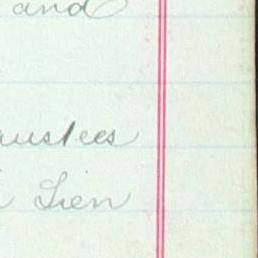 and
rustees
Lien